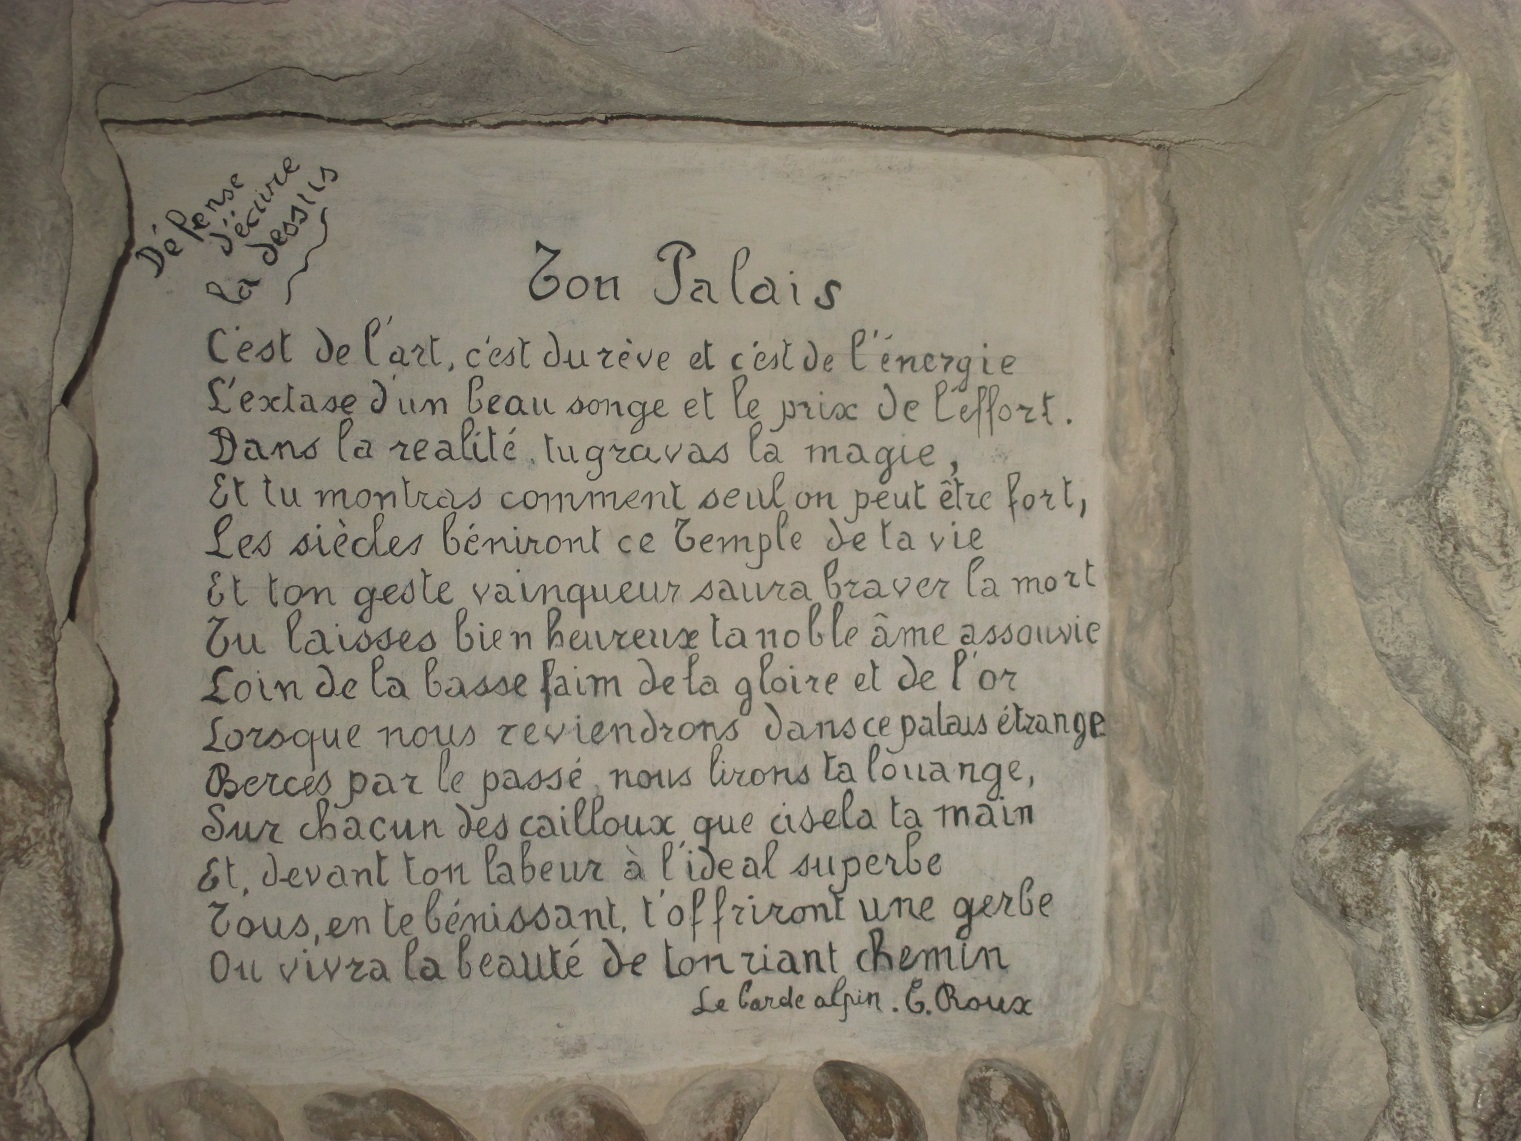 Défense
d'écrire
la dessus
Ton Palais
C'est de l'art, c'est du rêve et c'est de l'énergie
L'extase d'un beau songe et le prix de l'effort.
Dans la realité, tu gravas la magie,
Et tu montras comment seul on peut être fort,
Les siècles béniront ce Temple de ta vie
Et ton geste vainqueur saura braver la mort
Tu laisses bien heureux ta noble âme assouvie
Loin de la basse faim de la gloire et de l'or
Lorsque nous reviendrons dans ce palais étrange
Berces par le passé, nous lirons ta louange,
Sur chacun des cailloux que cisela ta main
Et, devant ton labeur à l'ideal superbe
Tous, en te bénissant, t'offriront une gerbe
Ou vivra la beauté de ton riant chemin
Le barde alpin. E. Roux